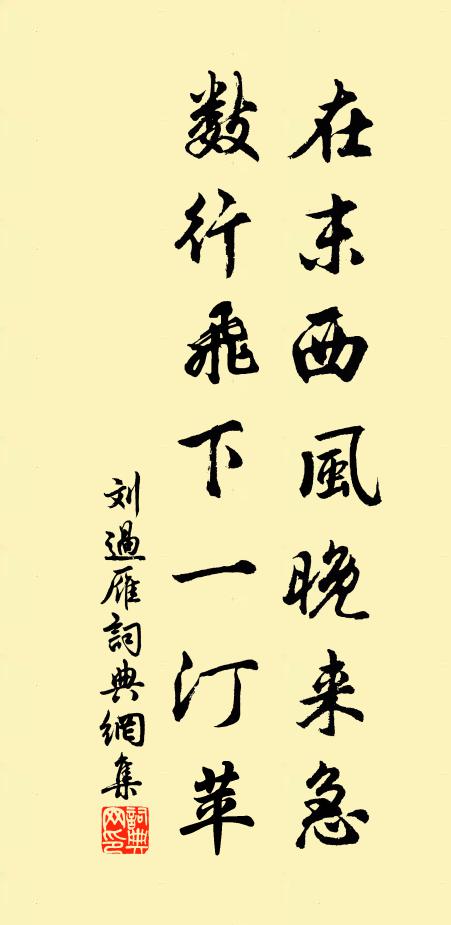 在末西風晚来急
数行飛下一汀苹
刘過雁詞典網集
詞典网印